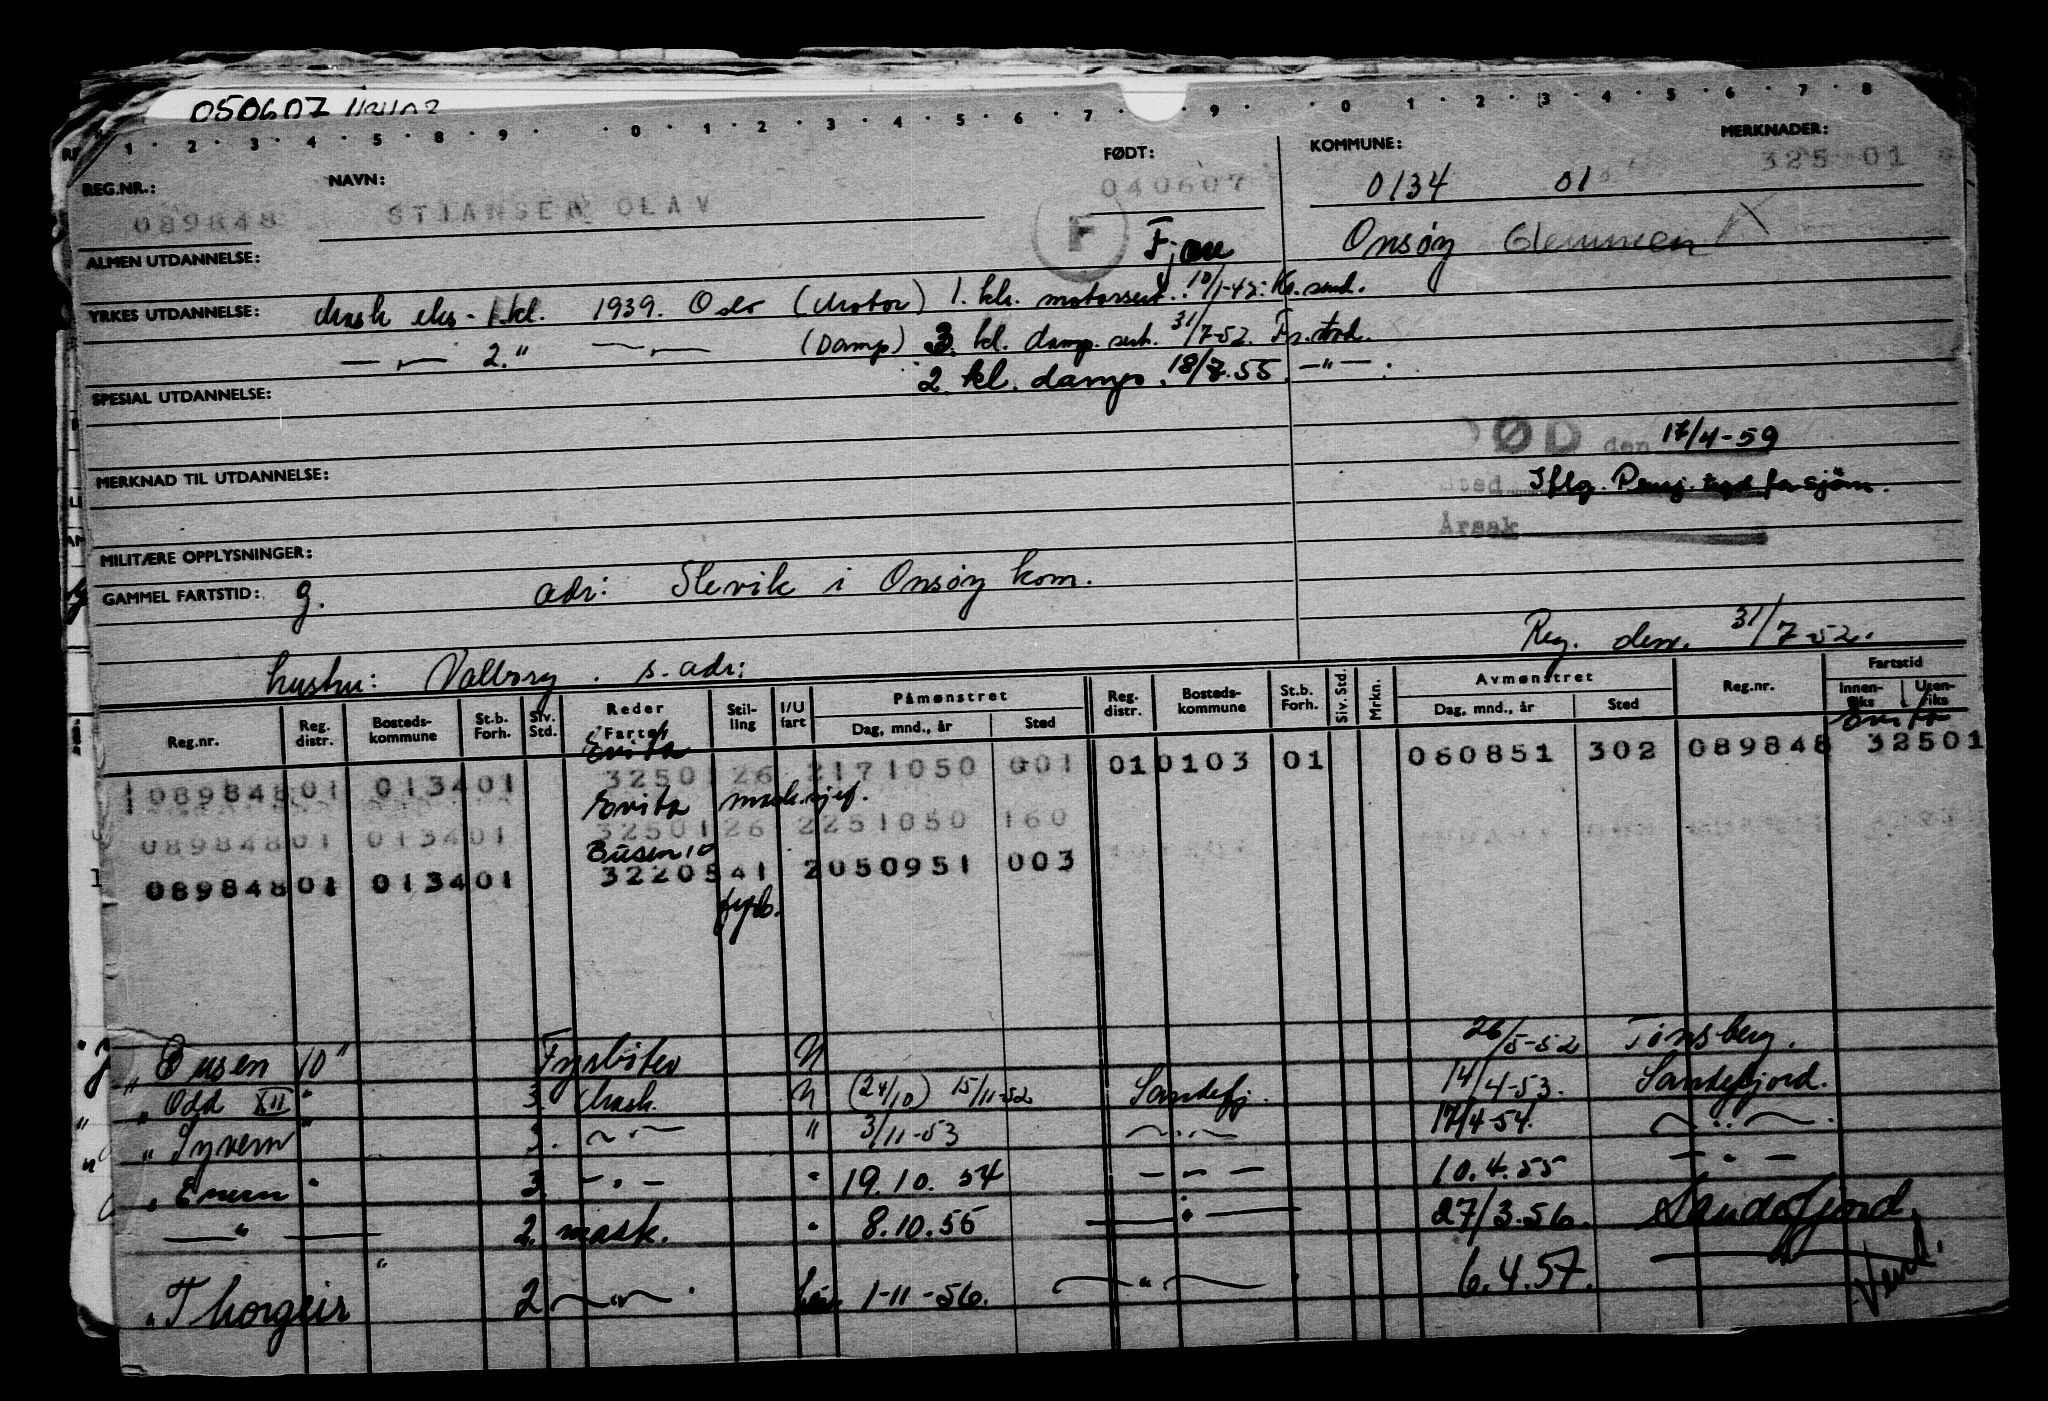 050607
1 · 2 · 3 · 4 · 5 · 8 · 9 · · 0 · 1 · 2 · 3 · 4 · 5 · 6 · 7 · · 9 · · 0 · 1 · 2 · 3 · 4 · 5 · 6 · 7 · 8
REG.NR.: NAVN: FØDT: KOMMUNE: MERKNADER:
089848 STIANSEN OLAV 040607 0134 01 325 01
F Onsøy Glemmen
ALMEN UTDANNELSE:
YRKES UTDANNELSE: Mask eks. 1. kl. 1939. Oslo (Motor) 1. kl. motorsert. 10/1-42. Kr.sund.
— „ — 2. " — „ — (Damp) 3. kl. damp. sert. 31/7-52. Fr.stad.
2. kl. damp. 18/7.55. — " — .
SPESIAL UTDANNELSE:
DØD den 17/4-59
MERKNAD TIL UTDANNELSE:
Sted Iflg. Pensj. trygd for sjøm.
Årsak
MILITÆRE OPPLYSNINGER:
GAMMEL FARTSTID: g. adr: Slevik i Onsøy kom.
Reg. den. 31/7-52.
hustru: Valborg. s. adr:
Reg.nr. Reg. distr. Bosteds-kommune St.b. Forh. Siv. Std. Rederi Fartøi Stil-ling I/U fart Påmønstret Dag, mnd., år Sted Reg. distr. Bosteds-kommune St.b. Forh. Siv. Std. Mrkn. Avmønstret Dag, mnd., år Sted Reg.nr. Fartstid Innen-riks Uten-riks
Evita Evita
089848 01 0134 01 32501 26 2171050 001 01 0103 01 060851 302 089848 32501
Evita mask.sjef.
089848 01 0134 01 32501 26 2251050 160
Busen 10
089848 01 0134 01 32205 41 2050951 003
fyrb.
" Busen 10" Fyrbøter U 26/5-52 Tønsberg.
" Odd XII " 3. Mask. U (24/10) 15/11-52 Sandefj. 14/4-53. Sandefjord.
" Syvern " 3. — „ — " 3/11-53 — „ — 17/4-54. — „ — .
" Enern " 3 — " — " 19.10.54 — " — 10.4.55 — " —
— " — 2. mask. " 8.10.55 — " — 27/3.56. Sandefjord
" Thorgeir " 2 — „ — . 1-11-56. — " — 6.4.57. —
Vend.